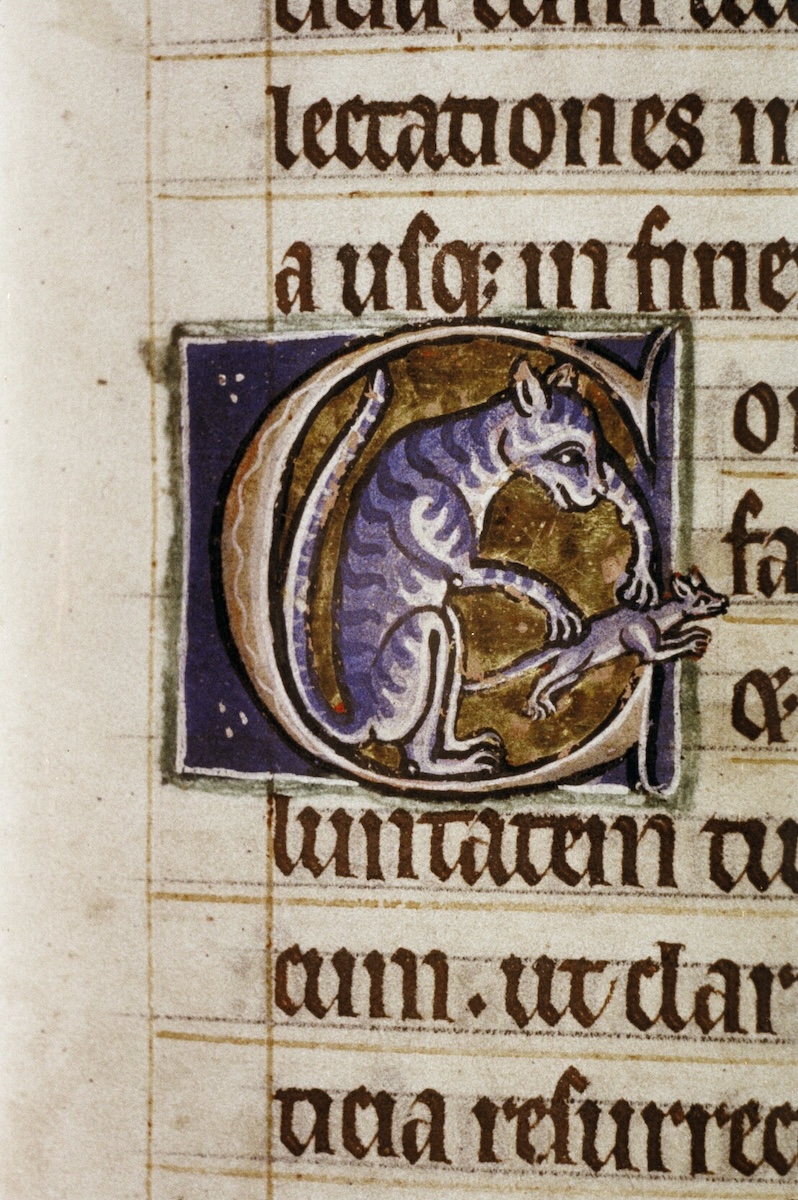 lectationes in
a usq; in fine
C on
fa
&
luntatem tu
cum . ut clar
ticia resurrec